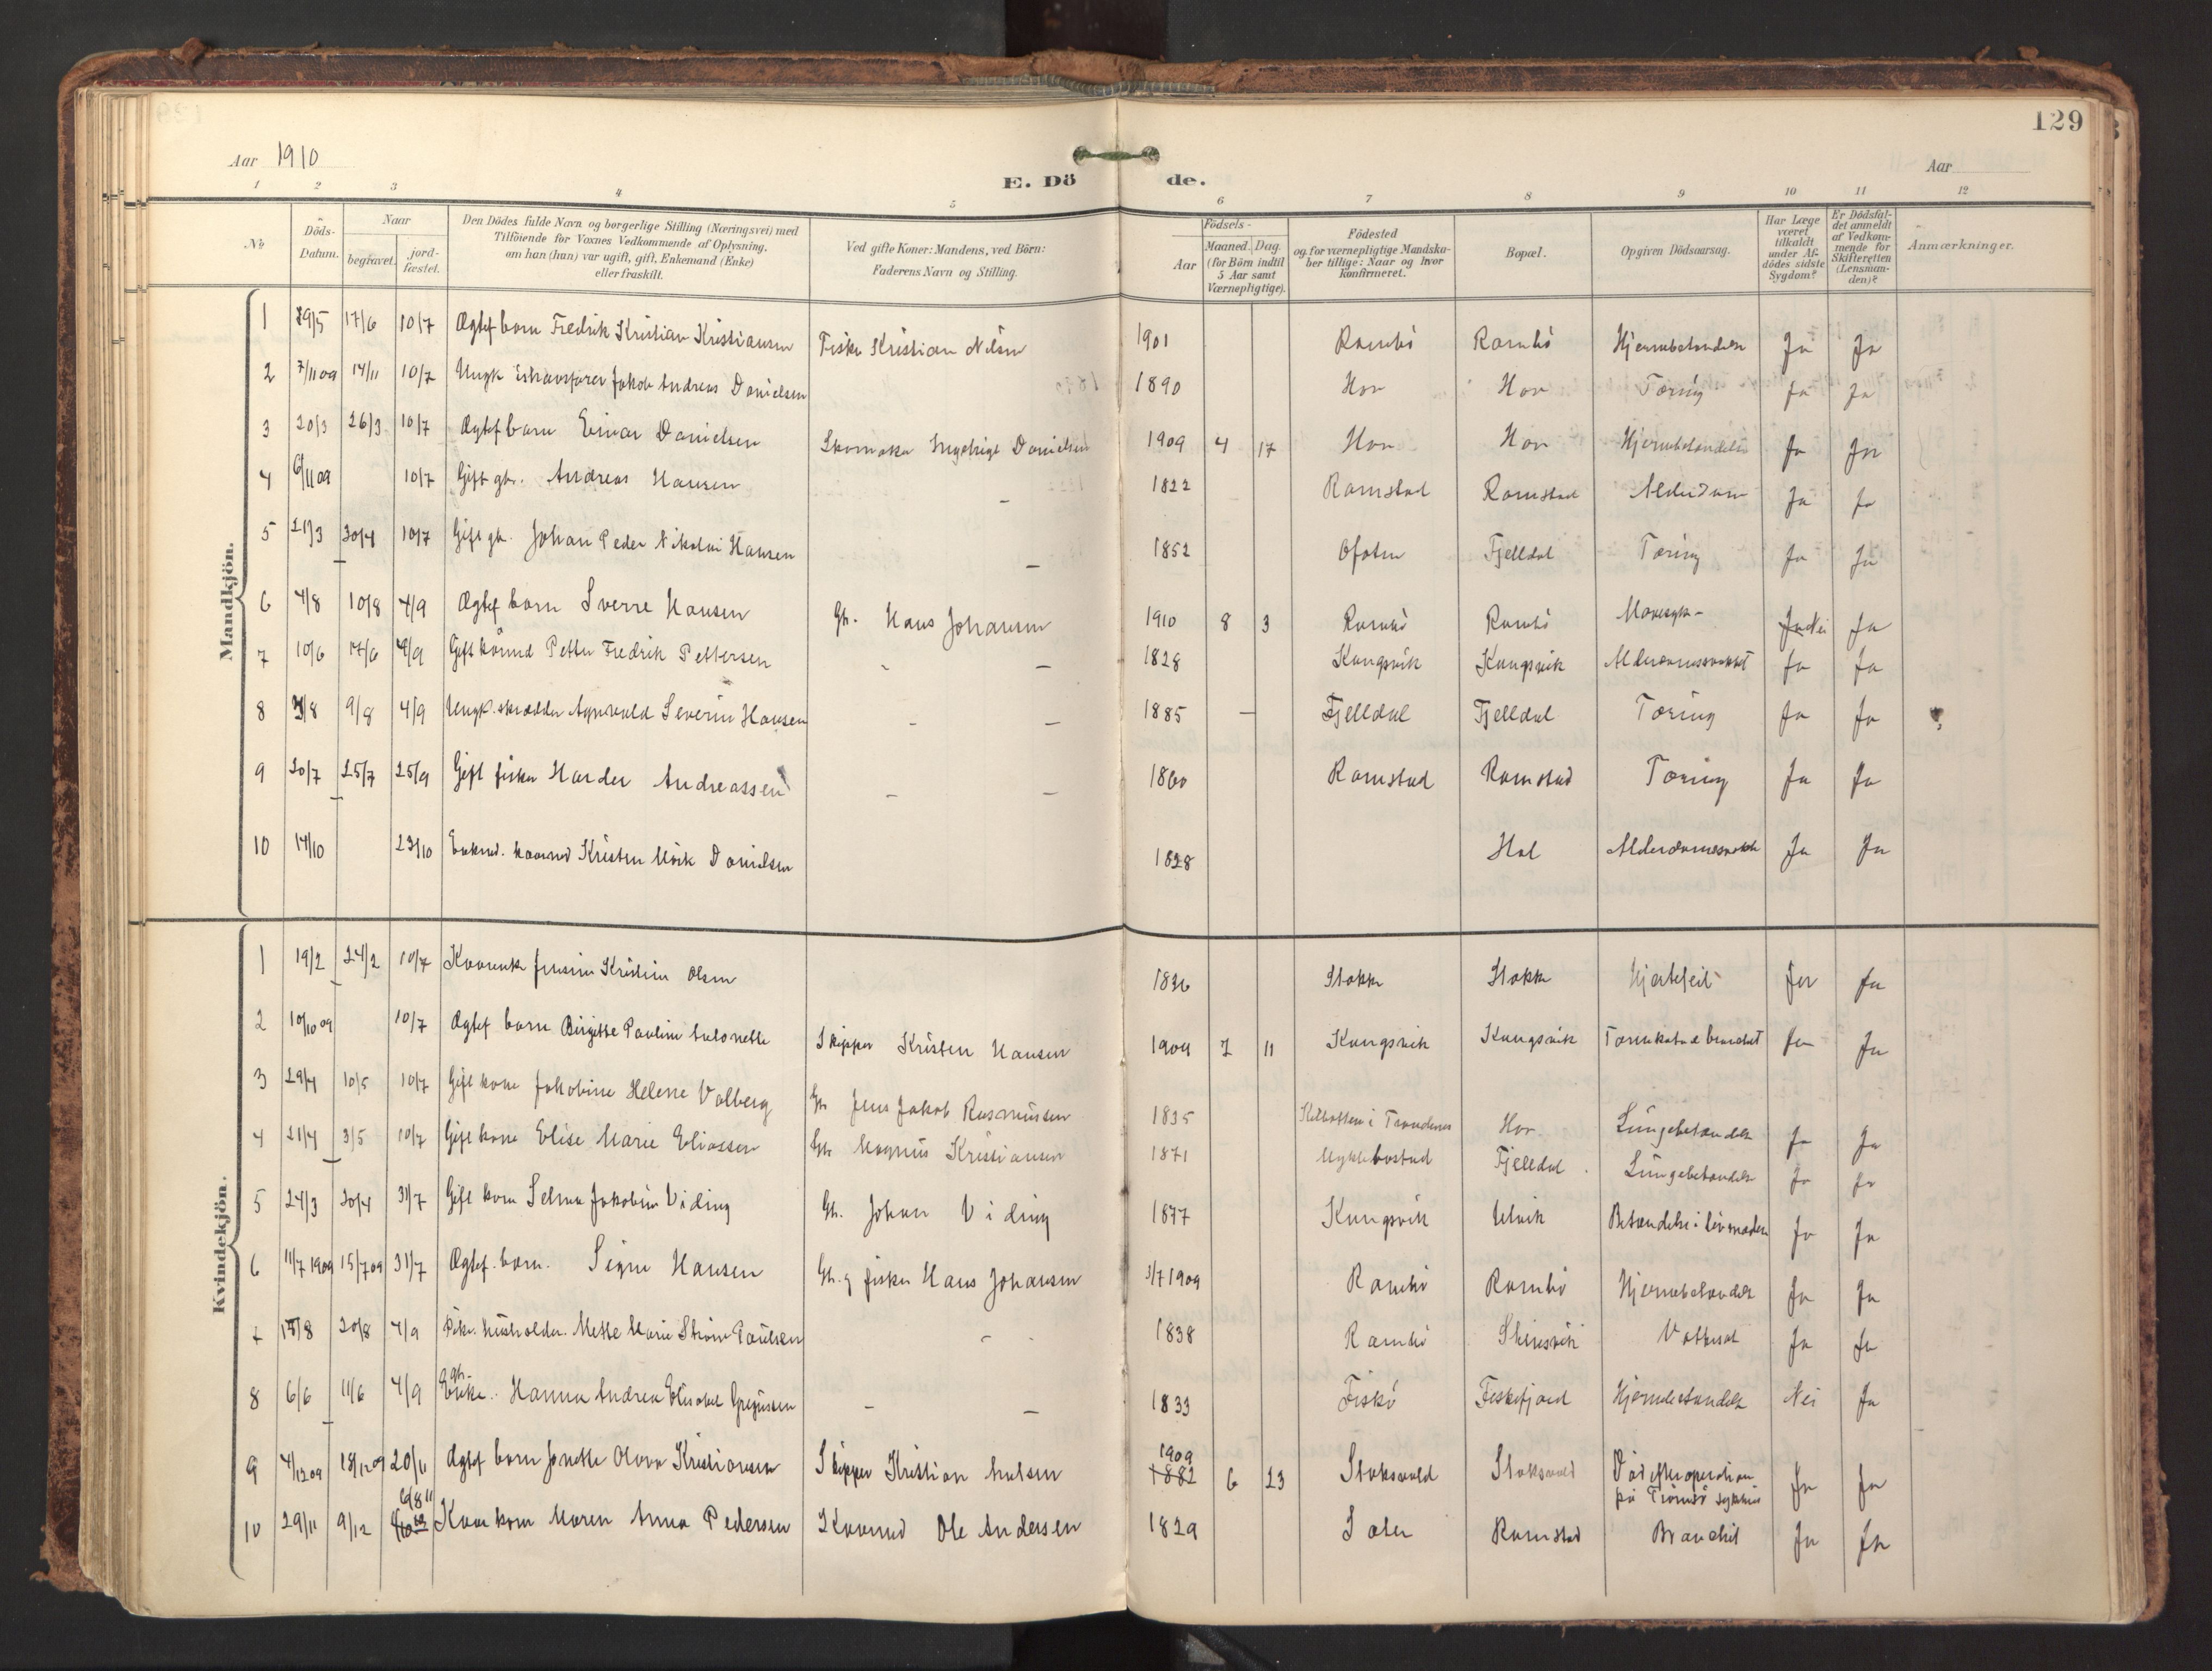 129
Aar 1910
Aar
E. Dö de.
1 2 3 4 5 6 7 8 9 10 11 12
No
Döds-Datum.
Naar
begravet.
jord-fæstet.
Den Dödes fulde Navn og borgerlige Stilling (Næringsvei) med
Tilföiende for Voxnes Vedkommende af Oplysning,
om han (hun) var ugift, gift, Enkemand (Enke)
eller fraskilt.
Ved gifte Koner: Mandens, ved Börn:
Faderens Navn og Stilling.
Födsels-
Aar
Maaned. Dag.
(for Börn indtil
5 Aar samt
Værnepligtige).
Födested
og for værnepligtige Mandska-
ber tillige: Naar og hvor
konfirmeret.
Bopæl.
Opgiven Dödsaarsag.
Har Læge
været
tilkaldt
under Af-
dödes sidste
Sygdom?
Er Dödsfal-
det anmeldt
af Vedkom-
mende for
Skifteretten
(Lensman-
den)?
Anmærkninger.
Mandkjön.
1 29/5 17/6 10/7 Ægtef barn Fredrik Kristian Kristiansen Fisker Kristian Nilsen 1901 Rambö Rambö Hjernebetændelse Ja Ja
2 7/11 09 14/11 10/7 Ungk Jakob Andreas Danielsen 1890 Hov Hov Tæring Ja Ja
3 20/3 26/3 10/7 Ægtef barn Einar Danielsen Skomaker Ingebrigt Danielsen 1909 4 17 Hov Hov Hjernebetændelse Ja Ja
4 6/11 09 10/7 Gift gbr. Andreas Hansen - 1822 Ramstad Ramstad Alderdom Ja Ja
5 21/3 30/4 10/7 Gift gbr. Johan Peder Nikolai Hansen - 1852 Ofoten Fjelldal Tæring Ja Ja
6 4/8 10/8 4/9 Ægtef barn Sverre Hansen Gbr. Hans Johansen 1910 8 3 Rambö Rambö Mavesyk- Ja Nei Ja
7 10/6 17/6 4/9 Gift kårmd Petter Fredrik Pettersen - - 1828 Kongsvik Kongsvik Alderdomssvakhet Ja Ja
8 3/8 9/8 4/9 Ungk. skrædder Agnvald Severin Hansen - - 1885 - Fjelldal Fjelldal Tæring Ja Ja
9 20/7 25/7 25/9 Gift fisker Harder Andreassen - - 1860 Ramstad Ramstad Tæring Ja Ja
10 14/10 23/10 Enkmd. kaarmd Kristen Mørk Danielsen 1828 Hol Alderdomssvakhet Ja Ja
Kvindekjön.
1 19/2 24/2 10/7 Kaarenke Kristine Olsen 1836 Stokke Stokke Hjertefeil Ja Ja
2 10/10 09 10/7 Ægtef barn Birgitte Pauline Antonette Skipper Kristen Hansen 1909 7 11 Kongsvik Kongsvik Ja Ja
3 29/4 10/5 10/7 Gift kone Jakobine Helene Valberg Gbr Jens Jakob Rasmussen 1835 i Trondenes Hov Lungebetændelse Ja Ja
4 21/4 3/5 10/7 Gift kone Elise Marie Eliassen Gbr Magnus Kristiansen 1871 Myklebostad Fjelldal Lungebetændelse Ja Ja
5 24/3 30/4 31/7 Gift kone Selma Jakobine Viding Gbr. Johan Viding 1877 Kongsvik Ulvik Betændelse i livmoderen Ja Ja
6 11/7 1909 15/7 09 31/7 Ægtef. barn. Signe Hansen Gbr. g fisker Hans Johansen 3/7 1909 Rambö Rambö Hjernebetændelse Ja Ja
7 15/8 20/8 4/9 Pike. husholder. Mette Marie Ström Paulsen - 1838 Rambö Skinsvik Vattersot Ja Ja
8 6/6 11/6 4/9 gbr- Enke. Hanna Andrea Elisabet Gregussen - - 1833 Fiskö Fiskefjord Hjernebetændelse Nei Ja
9 4/12 09 18/12 09 20/11 Ægtef barn Jonette Olova Kristiansen Skipper Kristian 1909 1882 6 23 Stoksvold Stoksvold Död efter operation
på Tromsö sykehus Ja Ja
10 29/11 9/12 Kaarkone Maren Anna Pedersen Kaarmd Ole Andersen 1829 Ramstad Ja Ja